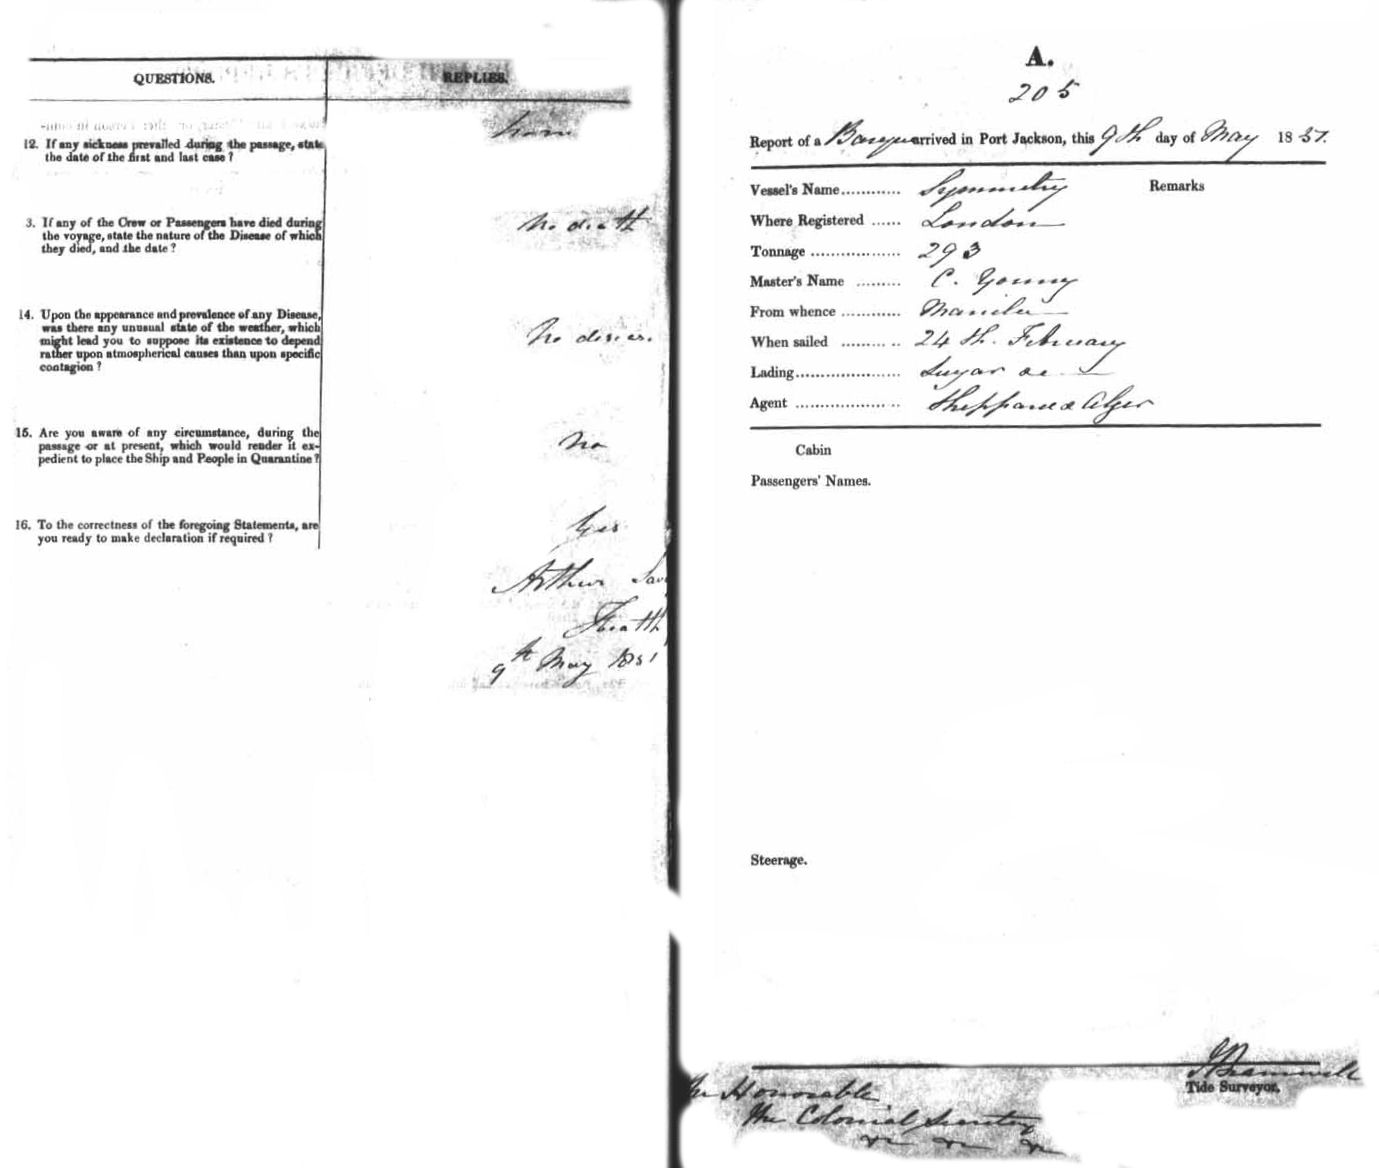 QUESTIONS. REPLIES.
12. If any sickness prevailed during the passage, state
the date of the first and last case?
3. If any of the Crew or Passengers have died during
the voyage, state the nature of the Disease of which
they died, and the date?
No death
14. Upon the appearance and prevalence of any Disease,
was there any unusual state of the weather, which
might lead you to suppose its existence to depend
rather upon atmospherical causes than upon specific
contagion?
No
15. Are you aware of any circumstance, during the
passage or at present, which would render it ex-
pedient to place the Ship and People in Quarantine?
No
16. To the correctness of the foregoing Statements, are
you ready to make declaration if required?
Yes
Arthur
9th May 1851
A.
205
Report of a Barque arrived in Port Jackson, this 9th day of May 1851.
Vessel's Name............ Symmetry Remarks
Where Registered ...... London
Tonnage .................. 293
Master's Name ......... C. Young
From whence ............ Manila
When sailed ............ 24th. February
Lading..................... Sugar &c
Agent ..................... Sheppard & Alger
Cabin
Passengers' Names.
Steerage.
Bramwell
Tide Surveyor.
The Honorable
The Colonial Secretary